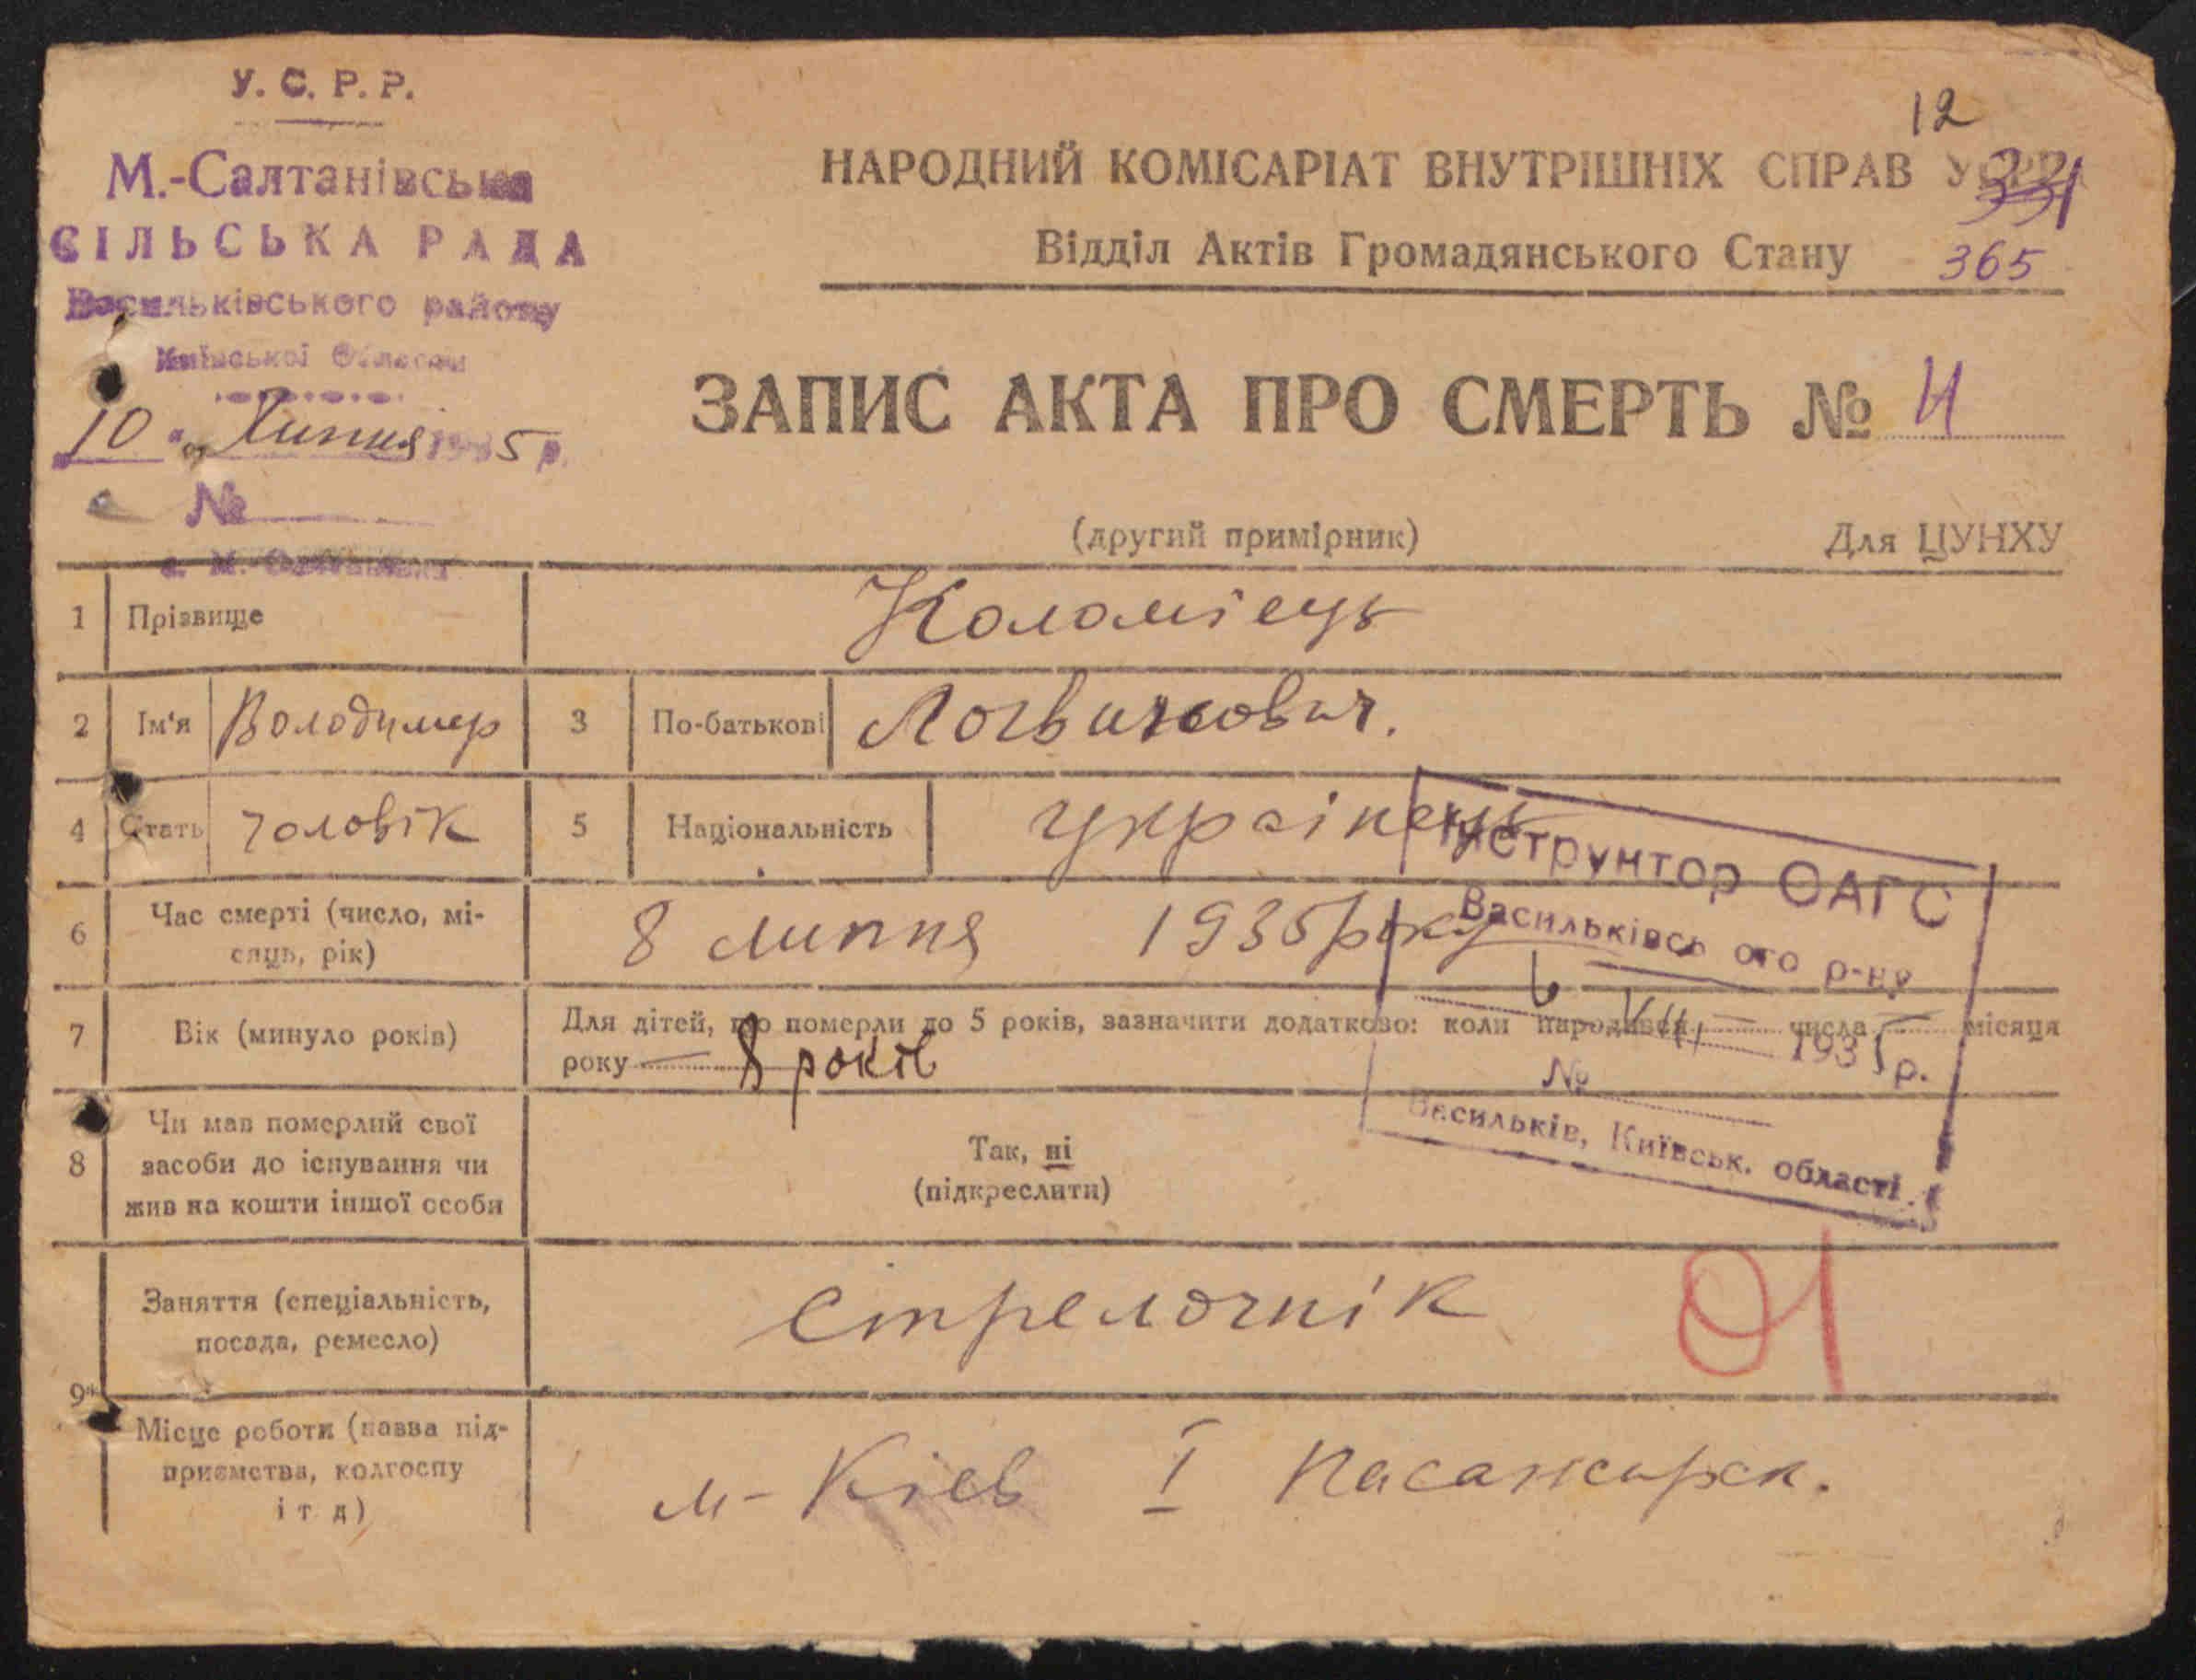 У. С. Р. Р.
М.-Салтанівська
СІЛЬСЬКА РАДА
Васильківського району
Київської Области
10 " Липня 1935 р.
№
с. М.-Салтанівка
12
НАРОДНИЙ КОМІСАРІАТ ВНУТРІШНІХ СПРАВ УСРР
331
Відділ Актів Громадянського Стану 365
ЗАПИС АКТА ПРО СМЕРТЬ №
(другий примірник) Для ЦУНХУ
1 Прізвище Коломієць
2 Ім'я Володимер 3 По-батькові Логвинович.
4 Стать чоловік 5 Національність українець
6 Час смерті (число, місяць, рік) 8 липня 1935 року
7 Вік (минуло років) Для дітей, що померли до 5 років, зазначити додатково: коли народився числа місяця
року 8 років
8 Чи мав померлий свої
засоби до існування чи
жив на кошти іншої особи
Так, ні
(підкреслити)
Інструктор ОАГС
Васильківсь ого р-ну
VIII 1935 р.
№
Васильків, Київськ. області.
9* Заняття (спеціальність,
посада, ремесло)
Стрелочнік
91
Місце роботи (назва під-
приємства, колгоспу
і т. д)
м- Кіев І Пасажирск.